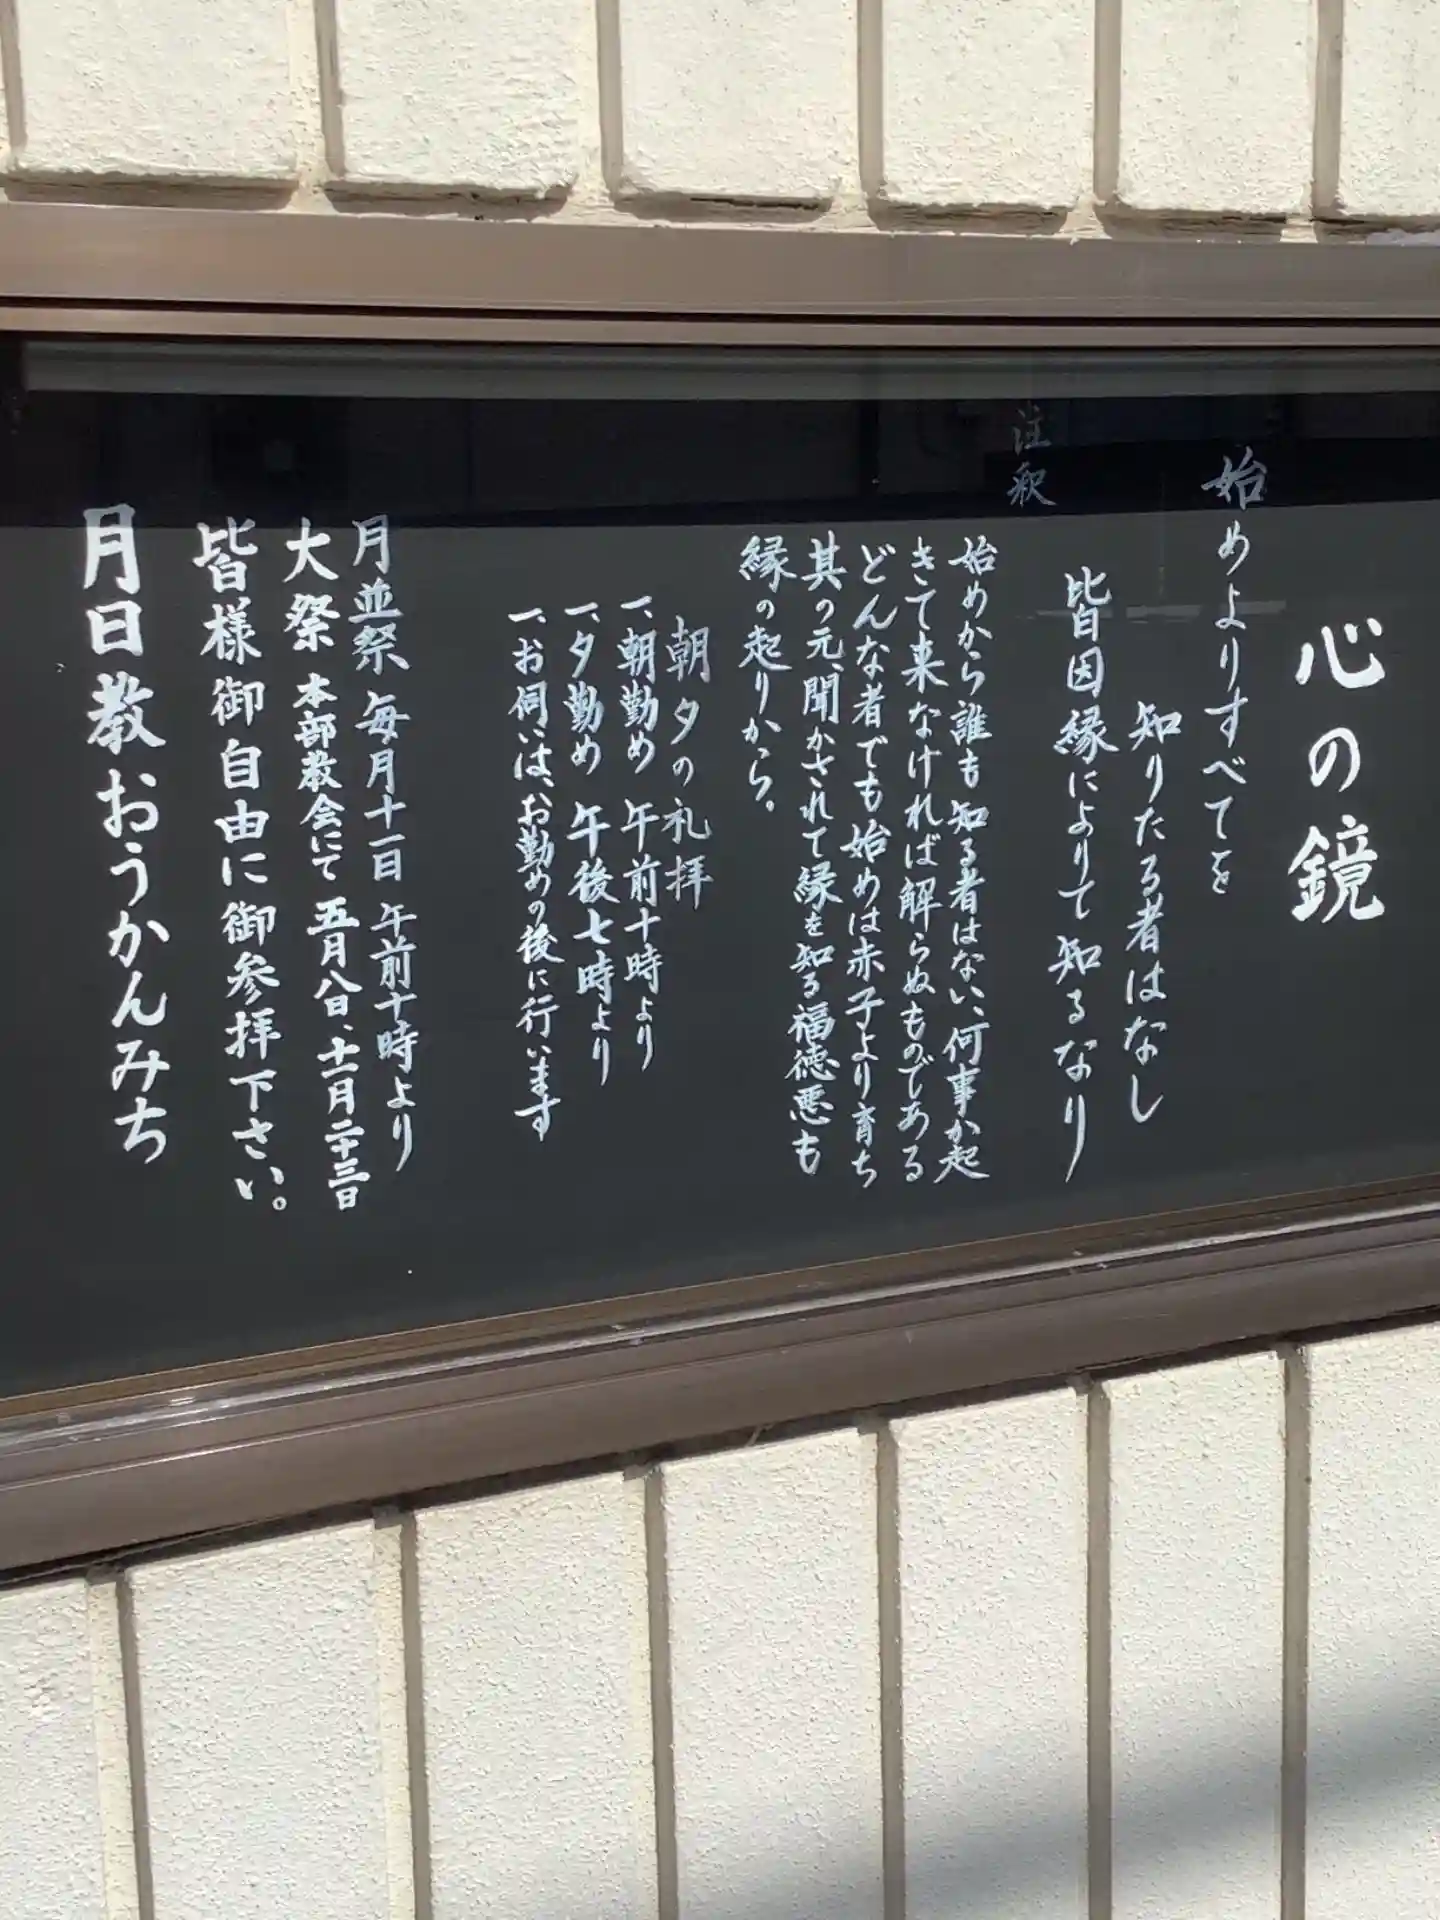 心の鏡
始めよりすべてを
知りたる者はなし
皆因縁によりて知るなり
注釈
始めから誰も知る者はない、何事か起
きて来なければ解らぬものである
どんな者でも始めは赤子より育ち
其の元、聞かされて縁を知る福徳悪も
縁の起りから。
朝夕の礼拝
一、朝勤め 午前十時より
一、夕勤め 午後七時より
一、お伺いは、お勤めの後に行います
月並祭 毎月十一日 午前十時より
大祭 本部教会にて 五月八日、十一月二十三日
皆様御自由に御参拝下さい。
月日教おうかんみち